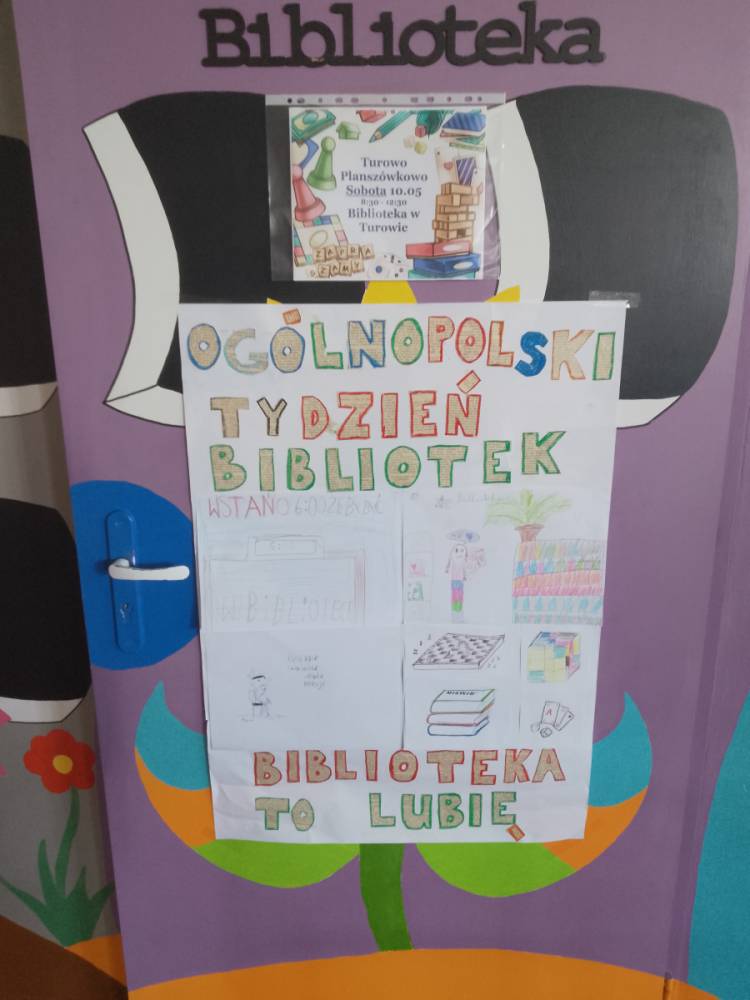 Biblioteka
Turowo
Planszówkowo
Sobota 10.05
8:30 - 12:30
Biblioteka w
Turowie
ZAPRA
SZAMY
OGÓLNOPOLSKI
TYDZIEŃ
BIBLIOTEK
WSTAŃ O 6:00
W BIBLIOTECE
A
BIBLIOTEKA
TO LUBIĘ